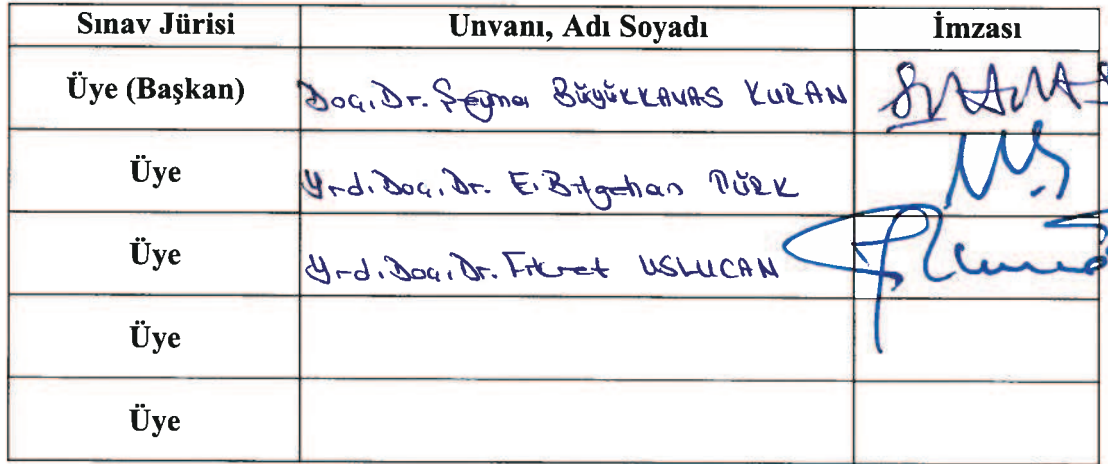 Sınav Jürisi Unvanı, Adı Soyadı İmzası
Üye (Başkan) Doç. Dr. Şeyma BÜYÜKKAVAS KURAN
Üye Yrd. Doç. Dr. E. Bilgehan TÜRK
Üye Yrd. Doç. Dr. Fikret USLUCAN
Üye
Üye